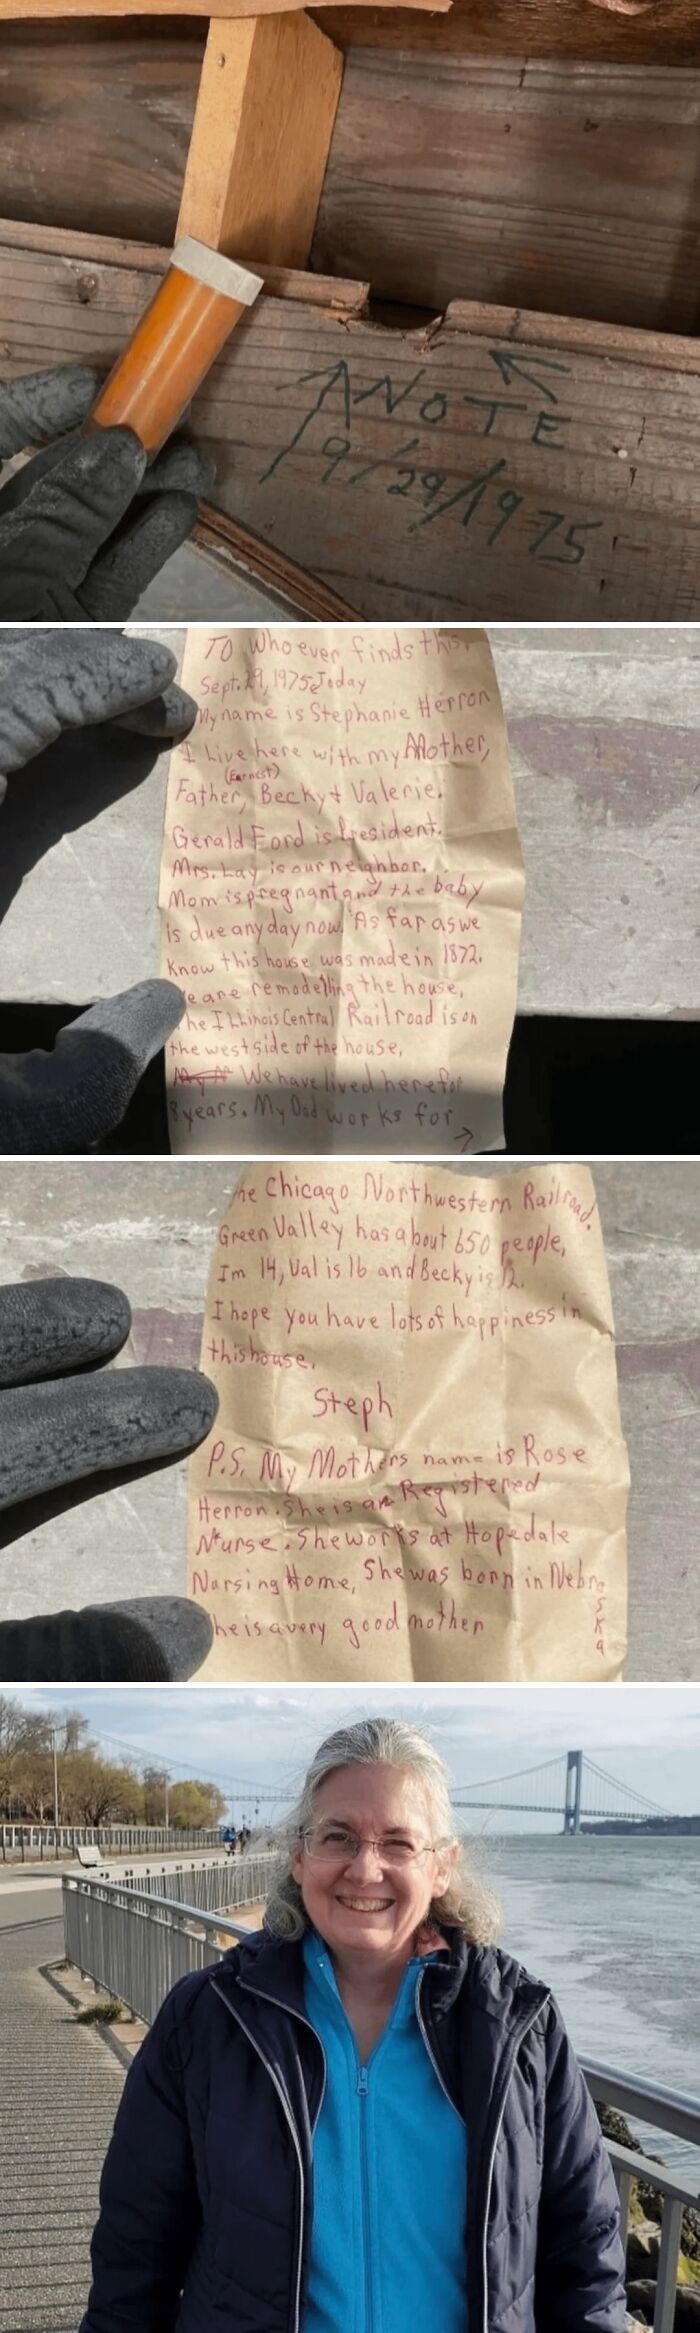 A NOTE
9/29/1975
TO Whoever finds this,
Sept. 29, 1975 Today
My name is Stephanie Herron
I Live here with my Mother,
(Earnest)
Father, Becky & Valerie.
Gerald Ford is President.
Mrs. Lay is our neighbor.
Mom is pregnant and the baby
is due any day now. As far as we
know this house was made in 1872.
We are remodelling the house.
The Illinois Central Railroad is on
the west side of the house.
We have lived here for
8 years. My Dad works for
The Chicago Northwestern Railroad.
Green Valley has about 650 people,
Im 14, Val is 16 and Becky is 12.
I hope you have lots of happiness in
this house.
Steph
P.S. My Mothers name is Rose
Herron. She is an Registered
Nurse. She works at Hopedale
Nursing Home, She was born in Nebraska
She is a very good mother